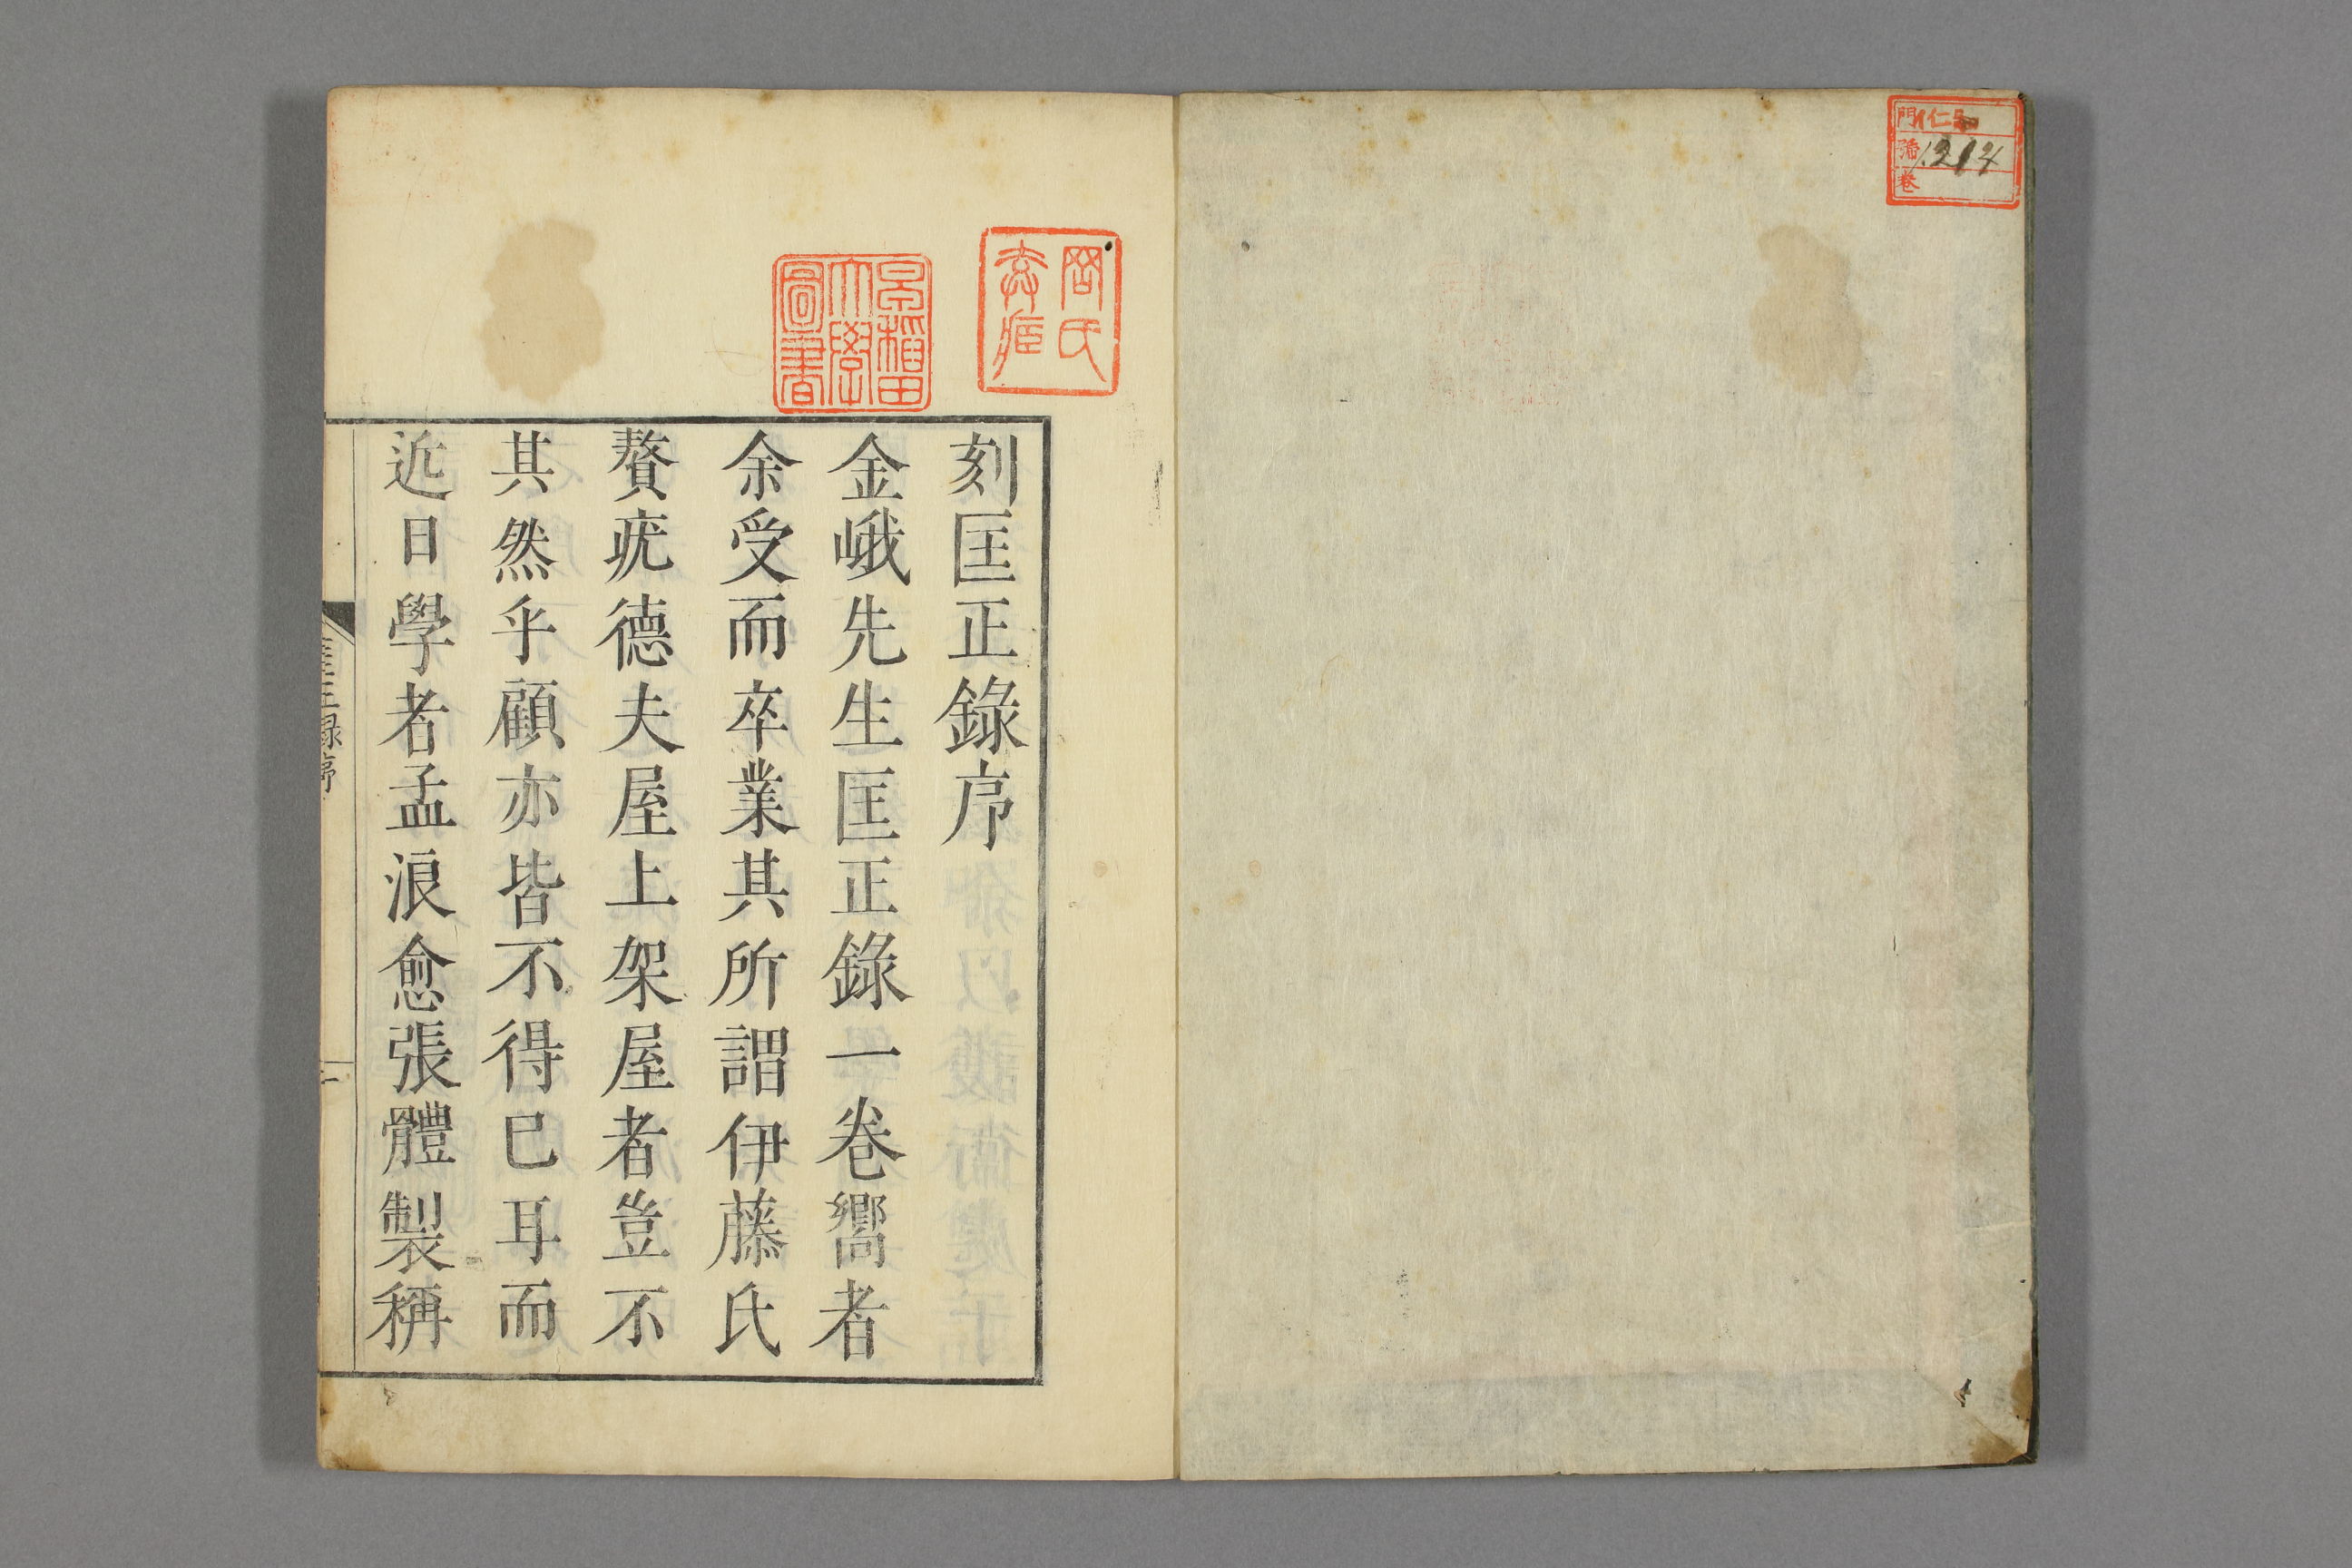 門 仁5
號 1214
卷
早稻田
大學
圖書
刻匡正錄序
金峨先生匡正錄一卷嚮者
余受而卒業其所謂伊藤氏
贅疣德夫屋上架屋者豈不
其然乎顧亦皆不得已耳而
近日學者孟浪愈張體製稱
匡正録序
一